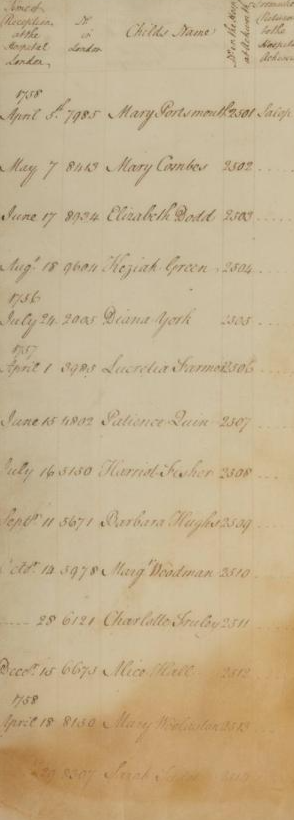 Time of Reception at the Hospital London
No in London
Childs Name
No in the Hosp at Ackworth
Hospital Ackworth
1758
April 5th 7985 Mary Portsmouth 2501 Salop
May 7 8413 Mary Combes 2502
June 17 8934 Elizabeth Dodd 2503
Augt 18 9604 Keziah Green 2504
1756
July 24 2005 Diana York 2505
1757
April 1 3985 Lucretia Farmer 2506
June 15 4802 Patience Quin 2507
July 16 5150 Harriot Fisher 2508
Septr 11 5671 Barbara Hughs 2509
Octor 14 5978 Margt Woodman 2510
28 6121 Charlotte 2511
Decer 15 6675 Alice Hall 2512
1758
April 18 8150 Mary 2513
8307 Sarah